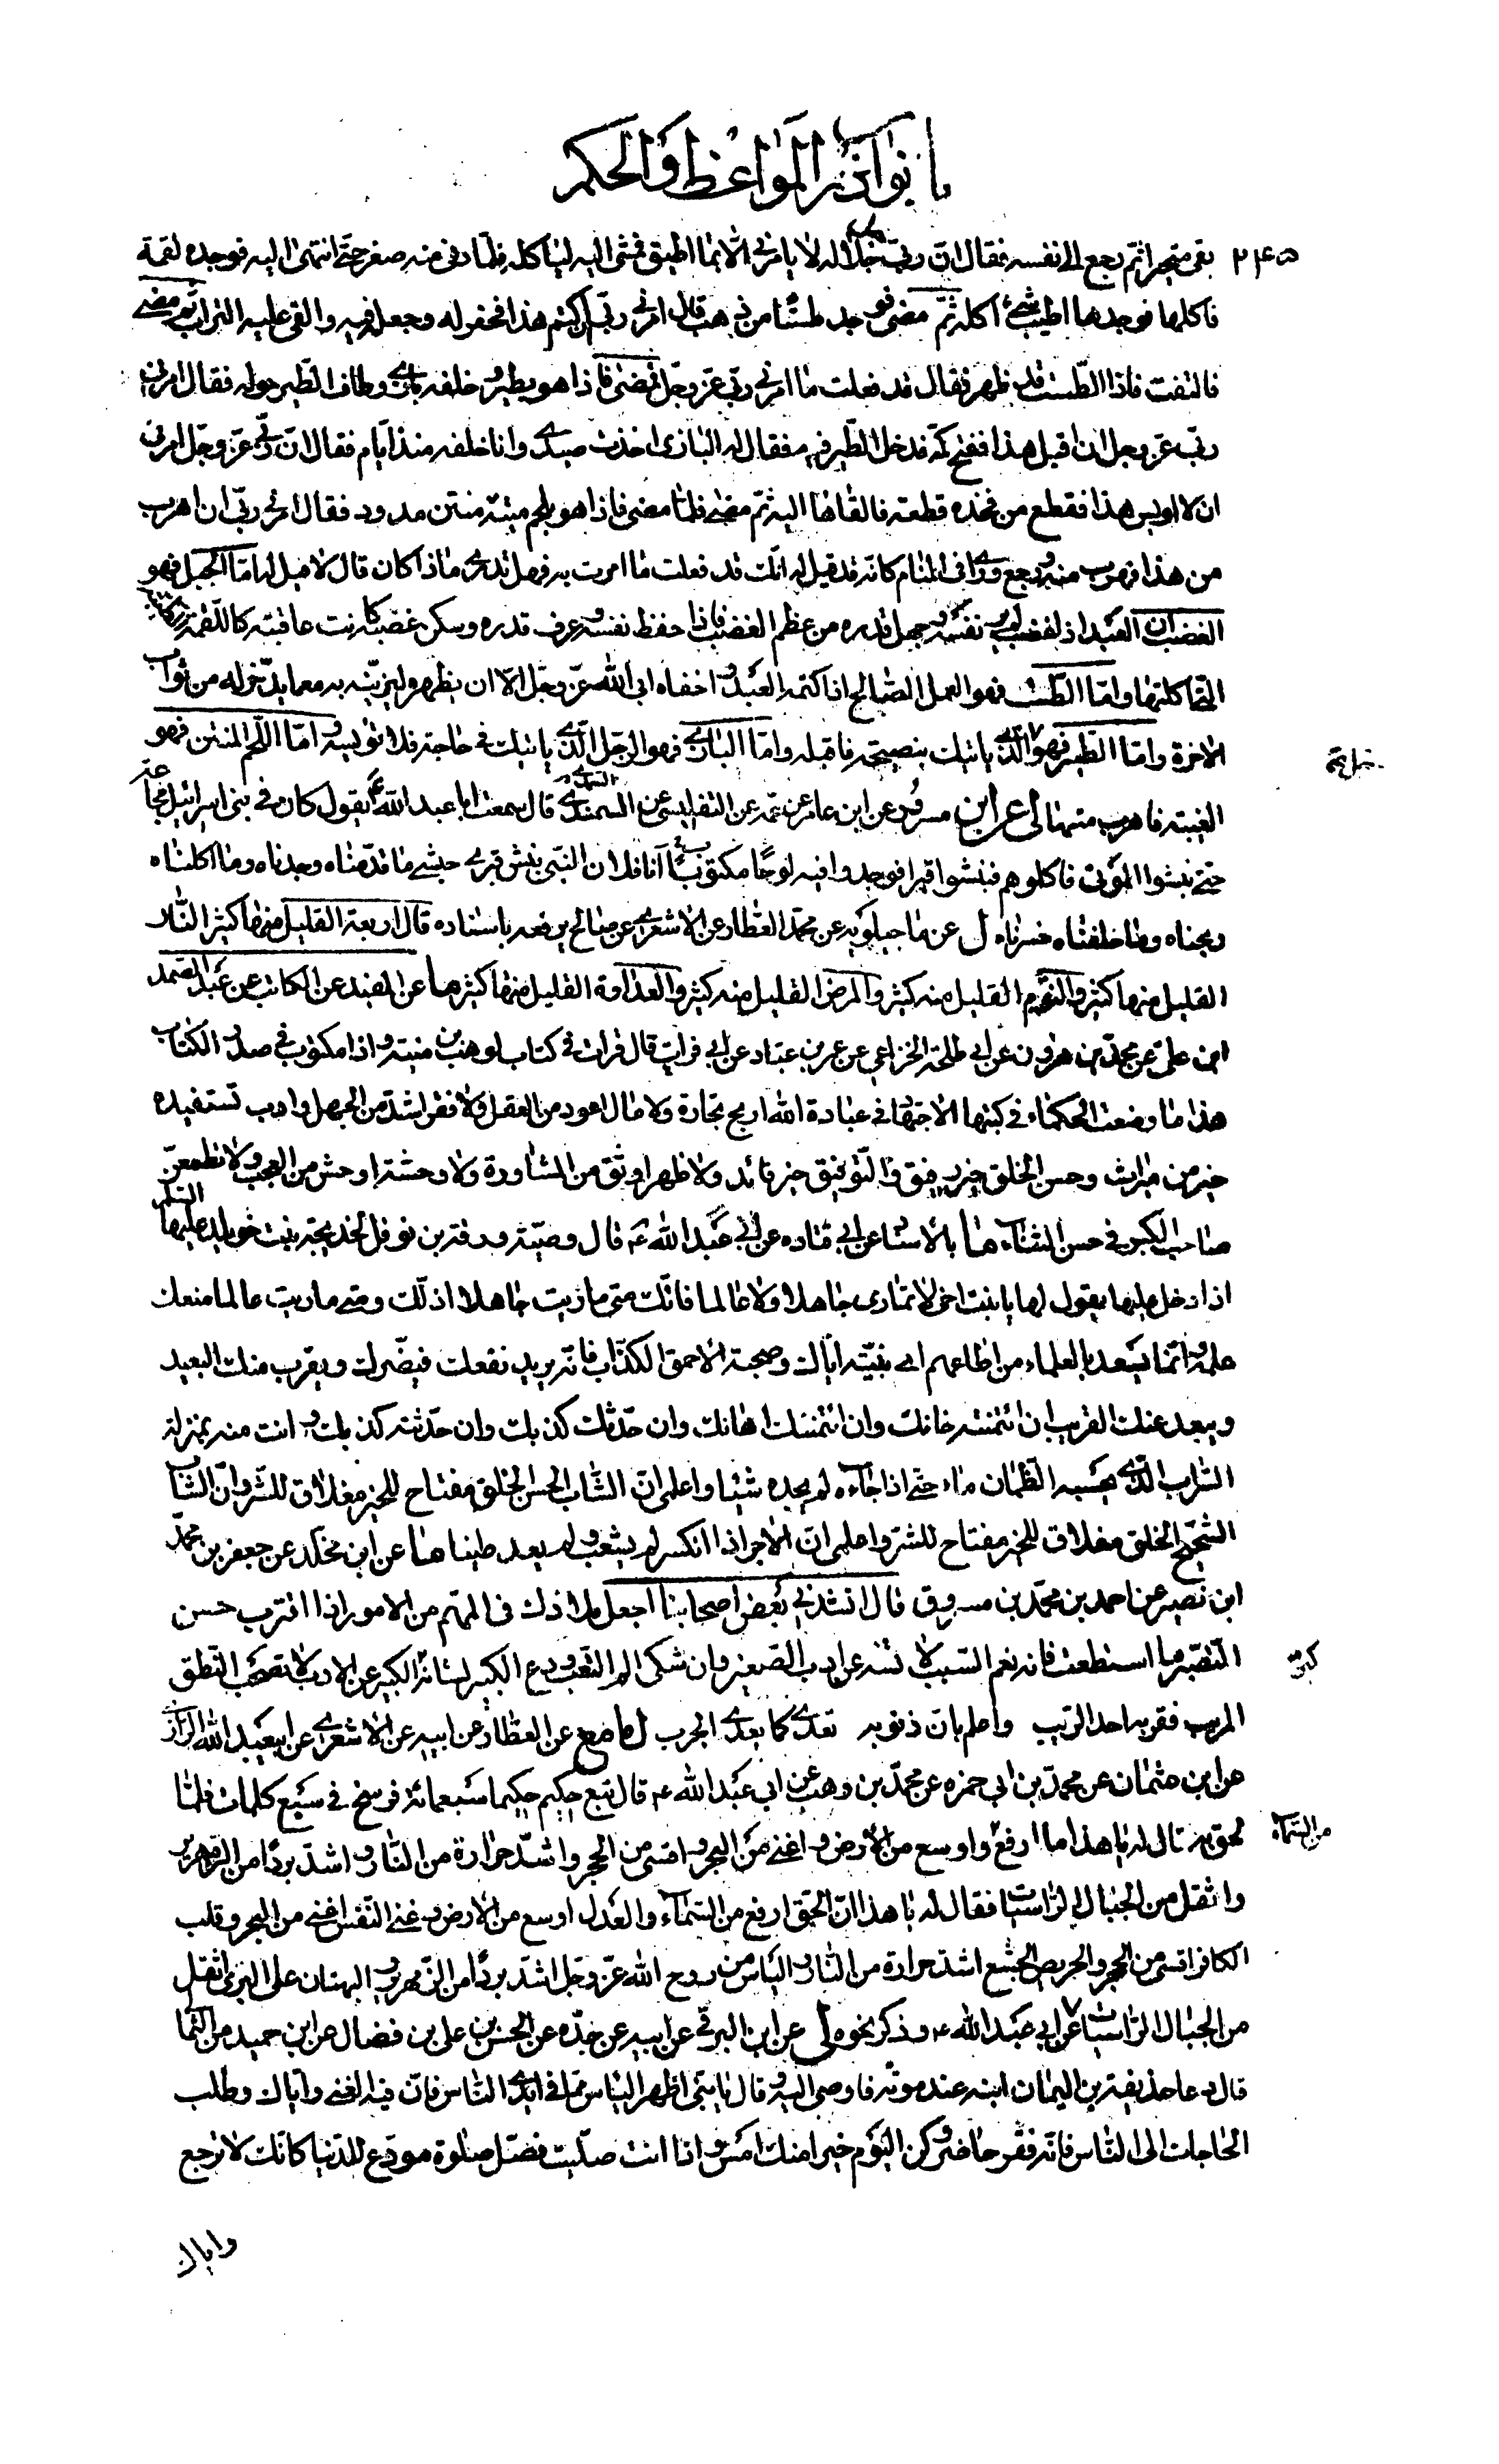 باب نوادر المواعظ والحكم
٢٤٥
بقى متحيرا ثم رجع الى نفسه فقال ان ربى جل جلاله لا يامرنى الا بما اطيق فمشى اليه لياكله فلما دنى منه صغر حتى انتهى اليه فوجده لقمة
فاكلها فوجدها اطيب شئ اكله ثم مضى فوجد طستا من ذهب قال امرنى ربى ان اكتم هذا فحفر له وجعله فيه والقى عليه التراب ثم مضى
فالتفت فاذا الطست قد ظهر فقال قد فعلت ما امرنى ربى عز وجل فمضى فاذا هو بطير و خلفه بازى وطاف الطير حوله فقال امرنى
ربى عز وجل ان اقبل هذا ففتح كمه فدخل الطير فيه فقال له البازى اخذت صيدى وانا خلفه منذ ايام فقال ان ربى عز وجل امرنى
ان لا اويس هذا فقطع من فخذه قطعة فالقاها اليه ثم مضى فلما مضى فاذا هو بلحم ميتة منتن مدود فقال امرنى ربى ان اهرب
من هذا فهرب منه و رجع وراى فى المنام كانه قد قيل له انك قد فعلت ما امرت به فهل تدرى ماذا كان قال لا قيل له اما الجبل فهو
الغضب ان العبد اذا غضب لم ير نفسه و جهل قدره من عظم الغضب فاذا حفظ نفسه و عرف قدره وسكن غضبه كانت عاقبته كاللقمة الطيبة
التى اكلتها واما الطست فهو العمل الصالح اذا كتمه العبد و اخفاه ابى الله عز وجل الا ان يظهره ليزينه به مع ما يدخر له من ثواب
الاخرة واما الطير فهو الذى ياتيك بنصيحة فاقبله واما البازى فهو الرجل الذى ياتيك فى حاجة فلا تويسه و اما اللحم المنتن فهو
الغيبة فاهرب منها لى عن ابن مسرور عن ابن عامر عن عمه عن التفليسى عن السمندى قال سمعت ابا عبد الله ع يقول كان فى بنى اسرائيل مجاعة
حتى نبشوا الموتى فاكلوهم فنبشوا قبرا فوجدوا فيه لوحا مكتوبا انا فلان النبى ينبش قبرى حبشى ما قدمناه وجدناه وما اكلناه
ربحناه وما خلفناه خسرناه ل عن ماجيلويه عن محمد العطار عن الاشعرى عن صالح يرفعه باسناده قال اربعة القليل منها كثير النار
القليل منها كثير والنوم القليل منه كثير والمرض القليل منه كثير والعداوة القليل منها كثير ما عن المفيد عن الكاتب عن عبد الصمد
ابن على عن محمد بن هرون عن ابى طلحة الخزاعى عن عمر بن عباد عن ابى فرات قال قرات فى كتاب لوهب بن منبه و اذا مكتوب فى صدر الكتاب
هذا ما وضعت الحكماء فى كتبها الاجتهاد فى عبادة الله اربح تجارة ولا مال اعود من العقل ولا فقر اشد من الجهل وادب تستفيده
خير من ميراث وحسن الخلق خير رفيق والتوفيق خير قائد ولا ظهر اوثق من المشاورة ولا وحشة اوحش من العجب ولا يطمعن
صاحب الكبر فى حسن الثناء ما بالاسناد عن ابى قتاده عن ابى عبد الله ع قال وصية ورقة بن نوفل لخديجة بنت خويلد عليها السلم
اذا دخل عليها يقول لها يا بنت اخى لا تمارى جاهلا ولا عالما فانك متى ماريت جاهلا اذلك ومتى ماريت عالما منعك
علمه و انما يسعد بالعلماء من اطاعهم اى بنية اياك وصحبة الاحمق الكذاب فانه يريد نفعك فيضرك ويقرب منك البعيد
ويبعد عنك القريب ان ائتمنته خانك وان ائتمنك اهانك وان حدثك كذبك وان حدثته كذبك و انت منه بمنزلة
السراب الذى يحسبه الظمان ماء حتى اذا جاءه لم يجده شيئا واعلم ان الشاب الحسن الخلق مفتاح للخير مغلاق للشر وان الشاب
الشحيح الخلق مغلاق للخير مفتاح للشر واعلم ان الاجر اذا انكسر لم يشعب و لم يعد طينا ما عن ابن مخلد عن جعفر بن محمد
ابن نصير عن احمد بن محمد بن مسروق قال انشدنى بعض اصحابنا اجعل تلادك فى المهم من الامور اذا اقترب حسن
التصبر ما استطعت فانه نعم السبب لا تسه عن ادب الصغير وان شكى الم التعب و دع الكبير لشانه الكبير عن الادب لا تصحب النطق
المريب فقربه احد الريب واعلم بان ذنوبه تعدى كما يعدى الجرب ل مع عن العطار عن ابيه عن الاشعرى عن ابى عبد الله الرازى
عن ابن عثمان عن محمد بن ابى حمزه عن محمد بن وهب عن ابى عبد الله ع قال تبع حكيم حكيما سبعمائة فرسخ فى سبع كلمات فلما
لحق به قال له يا هذا ما ارفع واوسع من الارض و اغنى من البحر و اقسى من الحجر واشد حرارة من النار و اشد بردا من الزمهرير
واثقل من الجبال الراسيات فقال له يا هذا ان الحق ارفع من السماء والعدل اوسع من الارض و غنى النفس اغنى من البحر و قلب
الكافر اقسى من الحجر والحريص الجشع اشد حرارة من النار و الياس من روح الله عز وجل اشد بردا من الزمهرير و البهتان على البرى اثقل
من الجبال الراسيات عن ابى عبد الله ع وذكر نحوه لى عن ابن البرقى عن ابيه عن جده عن الحسن بن على بن فضال عن ابن حميد عن الثمالى
قال دعا حذيفة بن اليمان ابنه عند موته فاوصى اليه و قال يا بنى اظهر الياس مما فى ايدى الناس فان فيه الغنى واياك وطلب
الحاجات الى الناس فانه فقر حاضر و كن اليوم خيرا منك امس و اذا انت صليت فصل صلوة مودع للدنيا كانك لا ترجع
من السماء
واياك